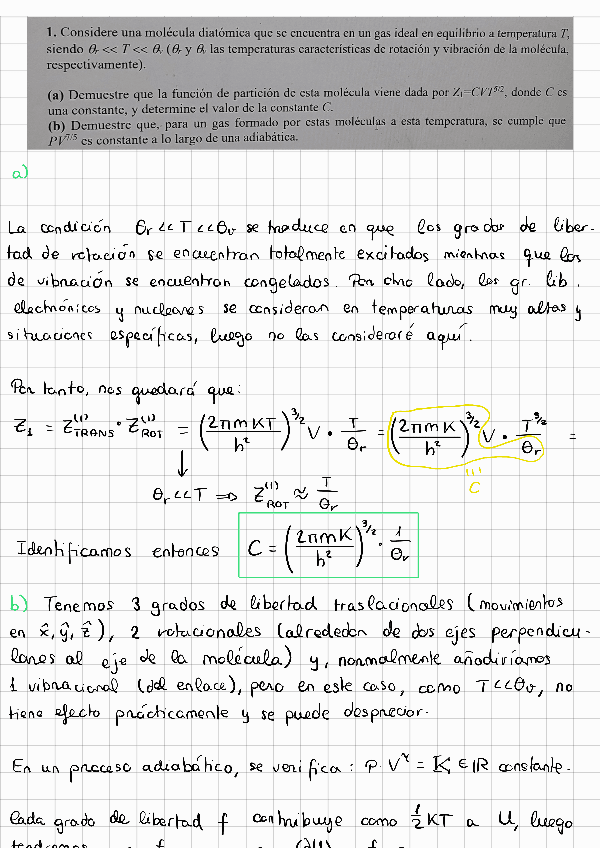 1. Considere una molécula diatómica que se encuentra en un gas ideal en equilibrio a temperatura T,
siendo θr << T << θv (θr y θv las temperaturas características de rotación y vibración de la molécula,
respectivamente).
(a) Demuestre que la función de partición de esta molécula viene dada por Z₁=CVT^5/2, donde C es
una constante, y determine el valor de la constante C.
(b) Demuestre que, para un gas formado por estas moléculas a esta temperatura, se cumple que
PV^7/5 es constante a lo largo de una adiabática.
a)
La condición θr << T << θv se traduce en que los grados de liber-
tad de rotación se encuentran totalmente excitados mientras que los
de vibración se encuentran congelados. Por otro lado, los gr. lib.
electrónicos y nucleares se consideran en temperaturas muy altas y
situaciones específicas, luego no las consideraré aquí.
Por tanto, nos quedará que:
Z₁ = Z_TRANS^(1) · Z_ROT^(1) = (2πmKT/h²)^3/2 V · T/θr = (2πmK/h²)^3/2 V · T^5/2/θr =
C
θr << T ⇒ Z_ROT^(1) ≈ T/θr
Identificamos entonces C = (2πmK/h²)^3/2 · 1/θr
b) Tenemos 3 grados de libertad traslacionales (movimientos
en x̂, ŷ, ẑ), 2 rotacionales (alrededor de dos ejes perpendicu-
lares al eje de la molécula) y, normalmente añadiríamos
1 vibracional (del enlace), pero en este caso, como T << θv, no
tiene efecto prácticamente y se puede despreciar.
En un proceso adiabático, se verifica: P·V^γ = K, ∈ ℝ constante.
Cada grado de libertad f contribuye como ½KT a U, luego